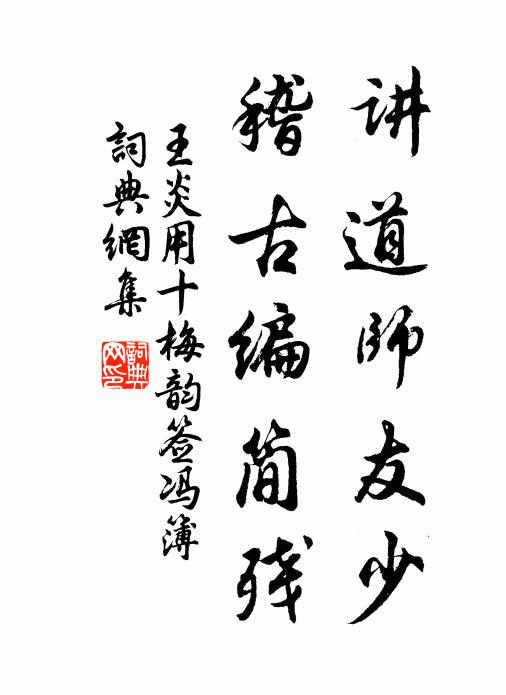 讲道师友少
稽古编简残
王炎用十梅韵签冯簿
詞典網集
詞典网印